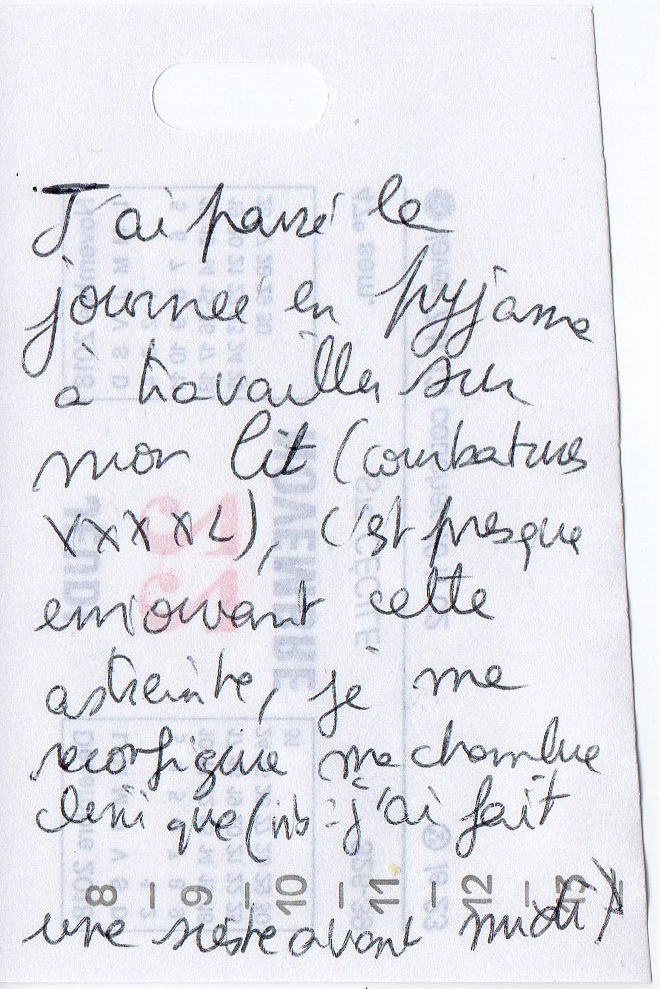 J'ai passé la
journée en pyjama
à travailler sur
mon lit (courbatures
XXXXL), c'est presque
émouvant cette
astreinte, je me
reconfigure ma chambre
clinique (nb : j'ai fait
8 – 9 – 10 – 11 – 12 – 13
une sieste avant midi)